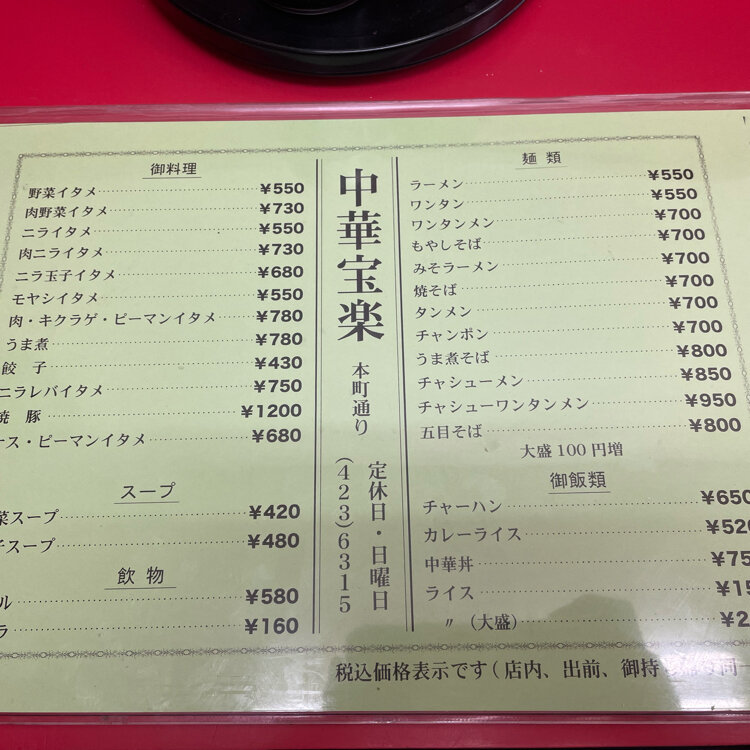 御料理
野菜イタメ ¥550
肉野菜イタメ ¥730
ニライタメ ¥550
肉ニライタメ ¥730
ニラ玉子イタメ ¥680
モヤシイタメ ¥550
肉・キクラゲ・ピーマンイタメ ¥780
うま煮 ¥780
餃子 ¥430
ニラレバイタメ ¥750
焼豚 ¥1200
ナス・ピーマンイタメ ¥680
スープ
菜スープ ¥420
スープ ¥480
飲物
ル ¥580
ラ ¥160
中華宝楽
本町通り
定休日・日曜日
(423)6315
麺類
ラーメン ¥550
ワンタン ¥550
ワンタンメン ¥700
もやしそば ¥700
みそラーメン ¥700
焼そば ¥700
タンメン ¥700
チャンポン ¥700
うま煮そば ¥800
チャシューメン ¥850
チャシューワンタンメン ¥950
五目そば ¥800
大盛100円増
御飯類
チャーハン ¥650
カレーライス ¥520
中華丼 ¥75
ライス ¥15
〃(大盛) ¥2
税込価格表示です(店内、出前、御持